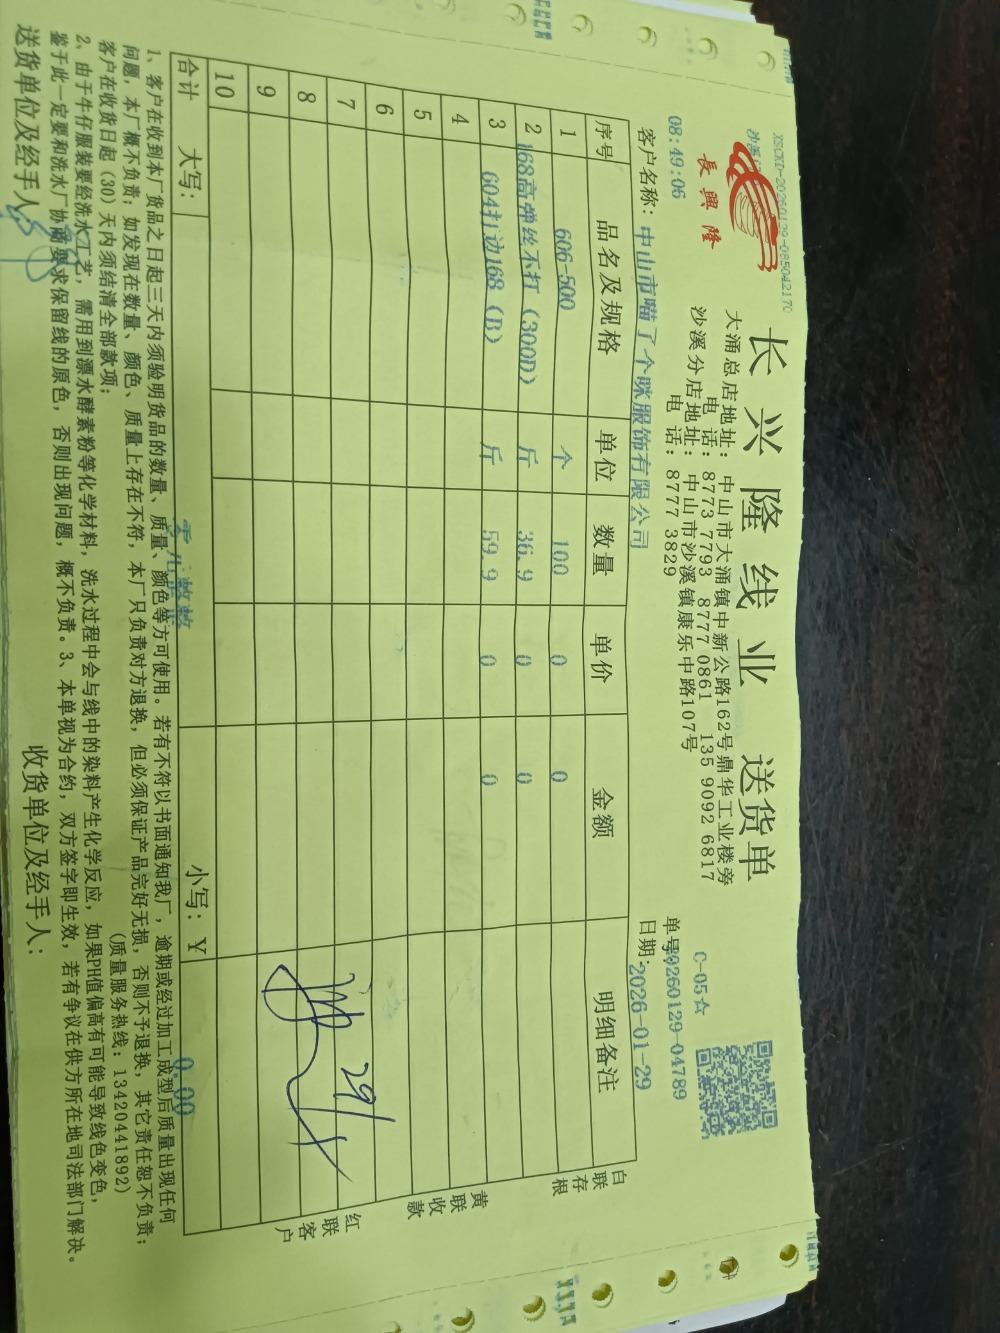 XSCKD-20260129-085042170
長興隆
长兴隆线业 送货单
大涌总店地址：中山市大涌镇中新公路162号鼎华工业楼旁
电话：8773 7793 8777 0861 135 9092 6817
沙溪分店地址：中山市沙溪镇康乐中路107号
电话：8777 3829
C-05☆
08:49:06
单号：20260129-04789
客户名称：中山市喵了个咪服饰有限公司
日期：2026-01-29
序号 品名及规格 单位 数量 单价 金额 明细备注
1 606-500 个 100 0 0
2 168高弹丝不打（300D） 斤 36.9 0 0
3 604打边168（B） 斤 59.9 0 0
4
5
6
7
8
9
10
29/1
合计 大写： 零元整 小写：￥ 0.00
白联存根
黄联收款
红联客户
1、客户在收到本厂货品之日起三天内须验明货品的数量、质量、颜色等方可使用。若有不符以书面通知我厂，逾期或经过加工成型后质量出现任何
问题，本厂概不负责；如发现在数量、颜色、质量上存在不符，本厂只负责对方退换，但必须保证产品完好无损，否则不予退换，其它责任恕不负责；
客户在收货日起（30）天内须结清全部款项；
（质量服务热线：13420441892）
2、由于牛仔服装要经洗水工艺，需用到漂水酵素粉等化学材料，洗水过程中会与线中的染料产生化学反应，如果PH值偏高有可能导致线色变色，
鉴于此一定要和洗水厂协商要求保留线的原色，否则出现问题，概不负责。3、本单视为合约，双方签字即生效，若有争议在供方所在地司法部门解决。
送货单位及经手人：
收货单位及经手人：